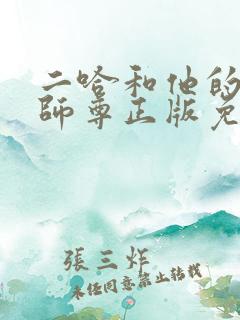 二哈和他的
師尊正版免
張三炸
未任同意禁止转载